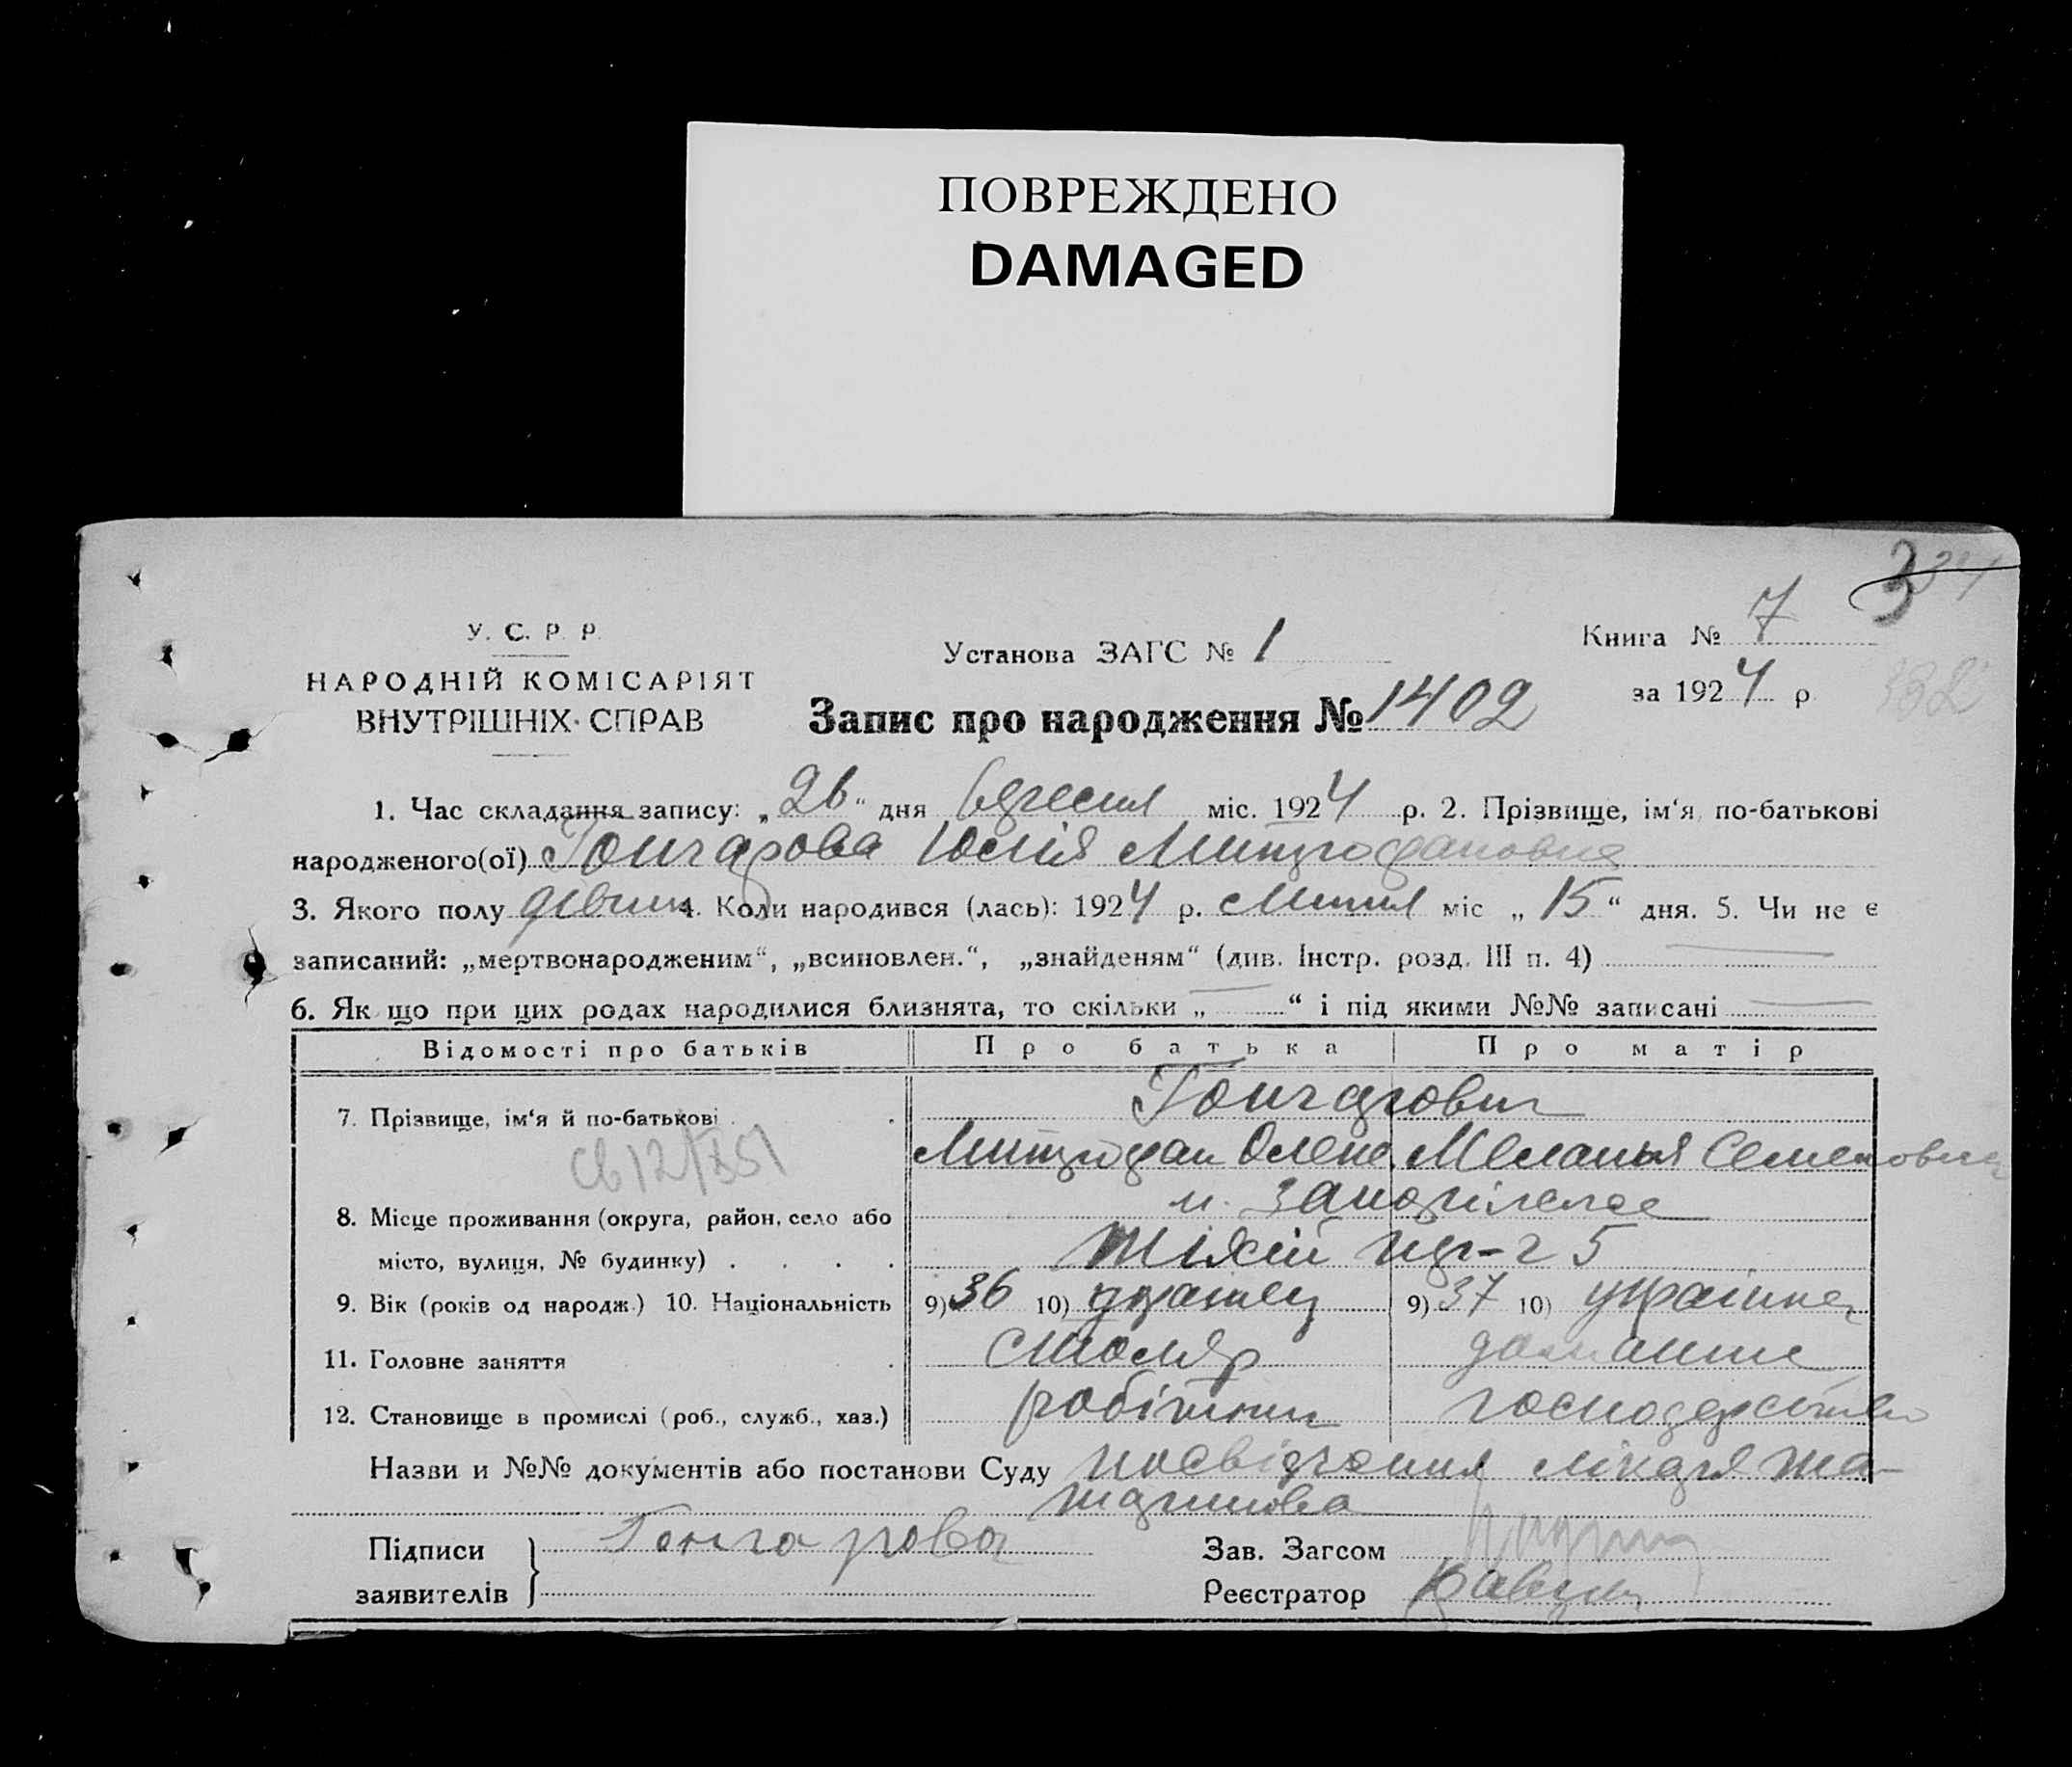 ПОВРЕЖДЕНО
DAMAGED
334
У. С. Р. Р.
НАРОДНІЙ КОМІСАРІЯТ
ВНУТРІШНІХ СПРАВ
Установа ЗАГС № 1
Книга № 7
за 1924 р.
332
Запис про народження № 1402
1. Час складання запису: „26“ дня вересня міс. 1924 р. 2. Прізвище, ім‘я, по-батькові
народженого(ої) Гончарова Юлія Митрофановна
3. Якого полу дівчин 4. Коли народився (лась): 1924 р. Липня міс „15“ дня. 5. Чи не є
записаний: „мертвонародженим“, „всиновлен.“, „знайденям“ (див. Інстр. розд. III п. 4)
6. Як що при цих родах народилися близнята, то скільки „ “ і під якими №№ записані
Відомості про батьків Про батька Про матір
7. Прізвище, ім‘я й по-батькові Гончарови
Митрофан Олекс. Меланья Семеновна
8. Місце проживання (округа, район, село або м. Запоріжжє
місто, вулиця, № будинку) 5
9. Вік (років од народж.) 10. Національність 9) 36 10) 9) 37 10) українка
11. Головне заняття столяр домашнє
12. Становище в промислі (роб., служб., хаз.) робітник господарство
Назви и №№ документів або постанови Суду посвідчення лікаря
Підписи Гончарова Зав. Загсом
заявителів Реєстратор